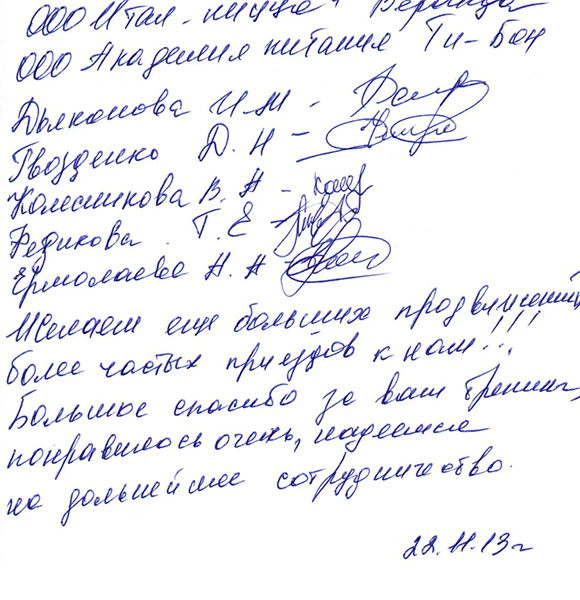 ООО Итал-пицца "Веранда"
ООО Академия питания Ти-Бон
Дьяконова И.М -
Гвозденко Д.Н -
Колесникова В.А -
Редикова Т.Е -
Ермолаева Н.А
Желаем еще больших продвижений,
более частых приездов к нам!!!
Большое спасибо за ваш тренинг,
понравилось очень, надеемся
на дальнейшее сотрудничество.
22.11.13г